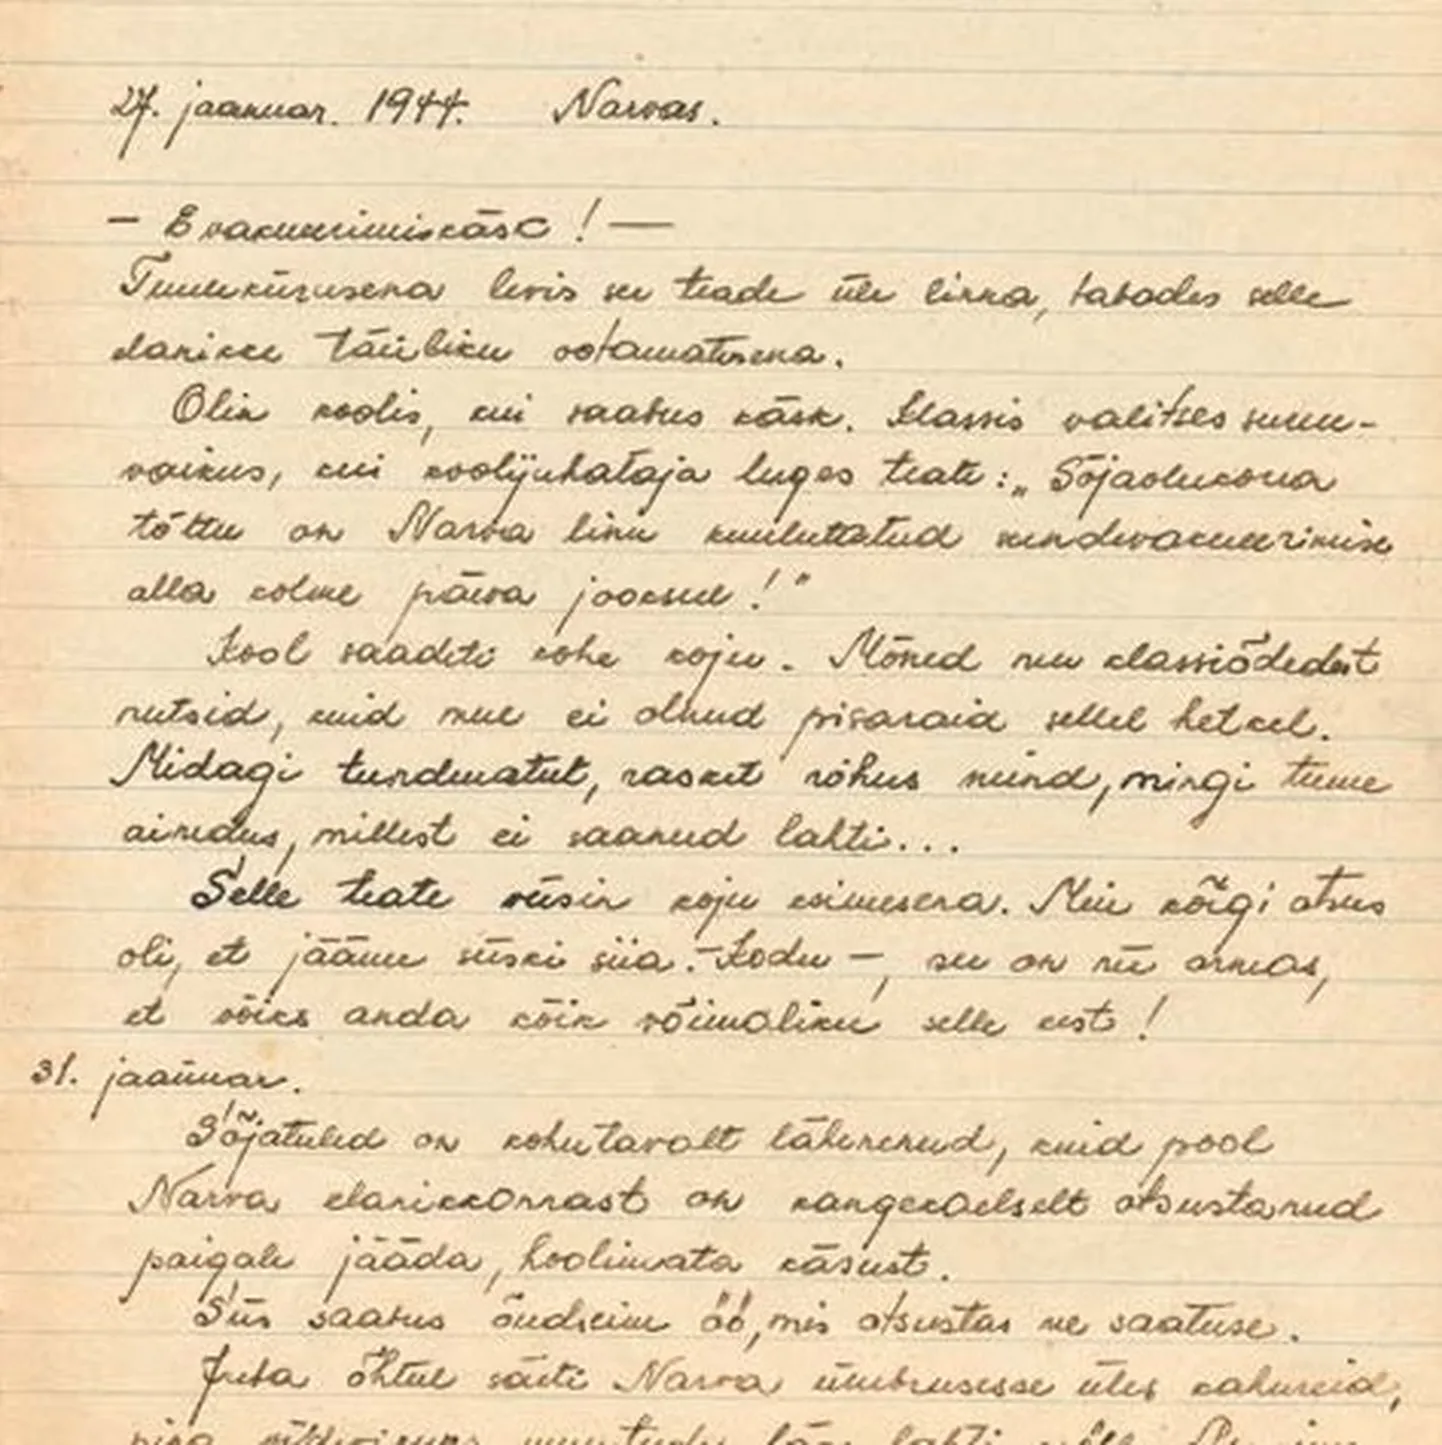 27. jaanuar. 1944. Narvas.
— Evakueerimiskäsk! —
Tuulekiirusena levis see teade üle linna, tabades selle
elanikke täieliku ootamatusena.
Olin koolis, kui saabus käsk. Klassis valitses surm-
vaikus, kui koolijuhataja luges teate: „Sõjaolukorra
tõttu on Narva linn kuulutatud sundevakueerimise
alla kolme päeva jooksul!"
Kool saadeti kohe koju. Mõned mu klassiõdedest
nutsid, kuid mul ei olnud pisaraid sellel hetkel.
Midagi tundmatut, rasket rõhus mind, mingi tume
aimdus, millest ei saanud lahti...
Selle teate viisin koju esimesena. Meie kõigi otsus
oli, et jääme siiski siia. – Kodu –, see on nii armas,
et võiks anda kõik võimaliku selle eest!
31. jaanuar.
Sõjatuled on kohutavalt lähenenud, kuid pool
Narva elanikkonnast on kangekaelselt otsustanud
paigale jääda, hoolimata käsust.
Siis saabus õudseim öö, mis otsustas me saatuse.
Juba õhtul säeti Narva ümbrusesse üles kahureid,
ning